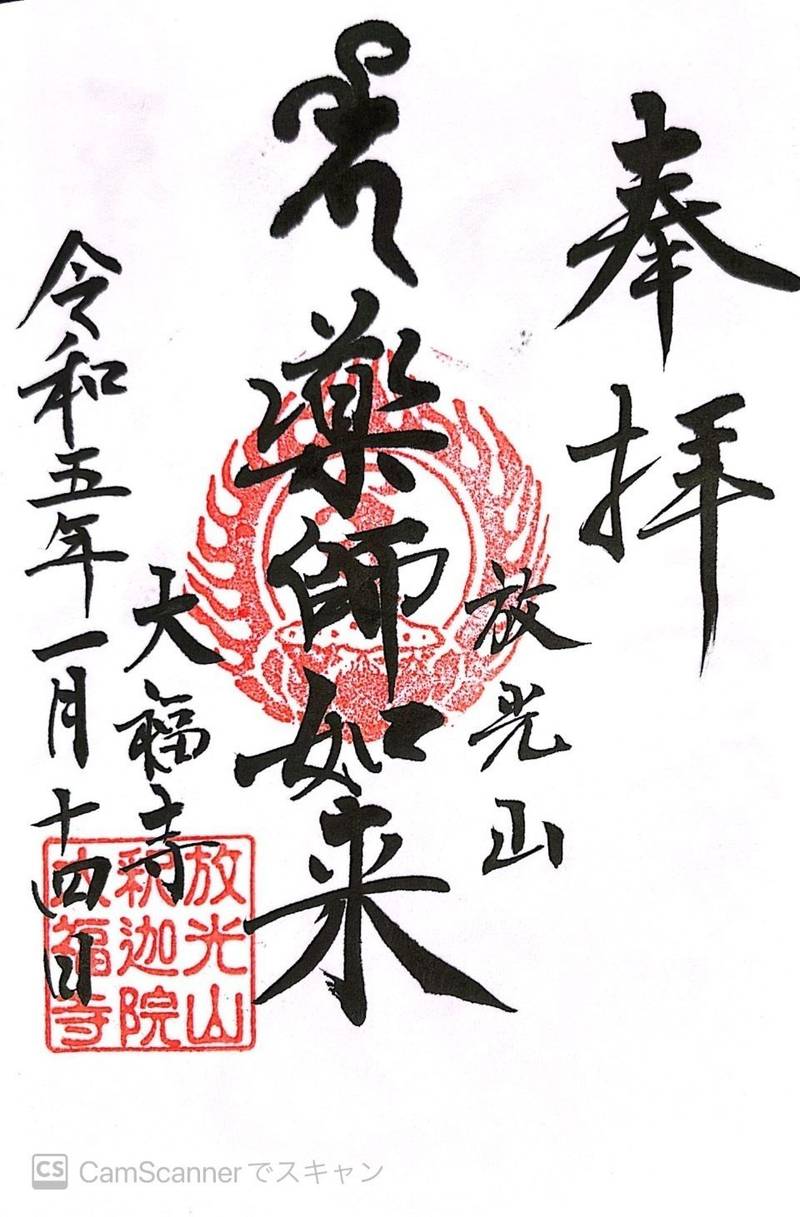 奉拝
放光山
薬師如来
大福寺
令和五年一月十四日
放光山
釈迦院
大福寺
CS CamScannerでスキャン